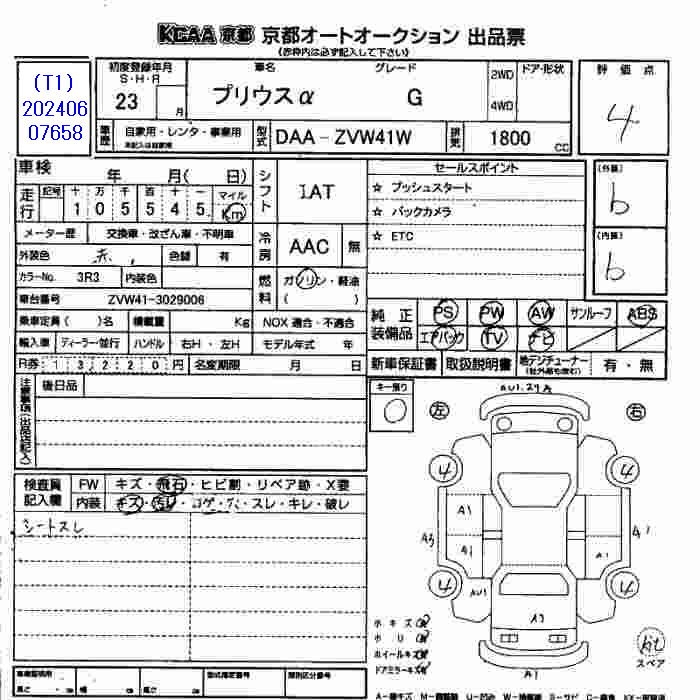 KCAA 京都 京都オートオークション 出品票
(赤枠内は必ず記入して下さい)
(T1)
202406
07658
初度登録年月
S・H・R
23 月
車名 グレード
プリウスα G
2WD
4WD
ドア・形状
評価点
4
車歴
自家用・レンタ・事業用
型式
DAA-ZVW41W
排気
1800 CC
車検 年 月( 日)
走行
記号
十 万 千 百 十 一
1 0 5 5 4 5
マイル
Km
シフト
IAT
セールスポイント
☆ プッシュスタート
☆ バックカメラ
☆ ETC
(外装)
b
(内装)
b
メーター歴 交換車・改ざん車・不明車
冷房
AAC 無
外装色 赤 色替 有
カラーNo. 3R3 内装色
燃料
ガソリン・軽油
( )
車台番号 ZVW41-3029006
乗車定員( )名 積載量 Kg NOX 適合・不適合
純正装備品
PS PW AW サンルーフ ABS
エアバック TV ナビ
輸入車 ディーラー・並行 ハンドル 右H・左H モデル年式 年
R券 13220円 名変期限 月 日
新車保証書 取扱説明書
地デジチューナー
(社外品も含む)
有・無
注意事項(出品店記入)
後日品
キー預り
0
左
右
AU1.2ヶA
4
4
4
4
A1
A1
A3
A1
A1
AU1
A3
A1
検査員記入欄
FW キズ・飛石・ヒビ割・リペア跡・X要
内装 キズ・汚レ・コゲ・穴・スレ・キレ・破レ
シートスレ
ホイールキズ
ドアミラーキズ
スペア
長さ cm 幅 cm 高さ cm
型式指定番号
類別区分番号